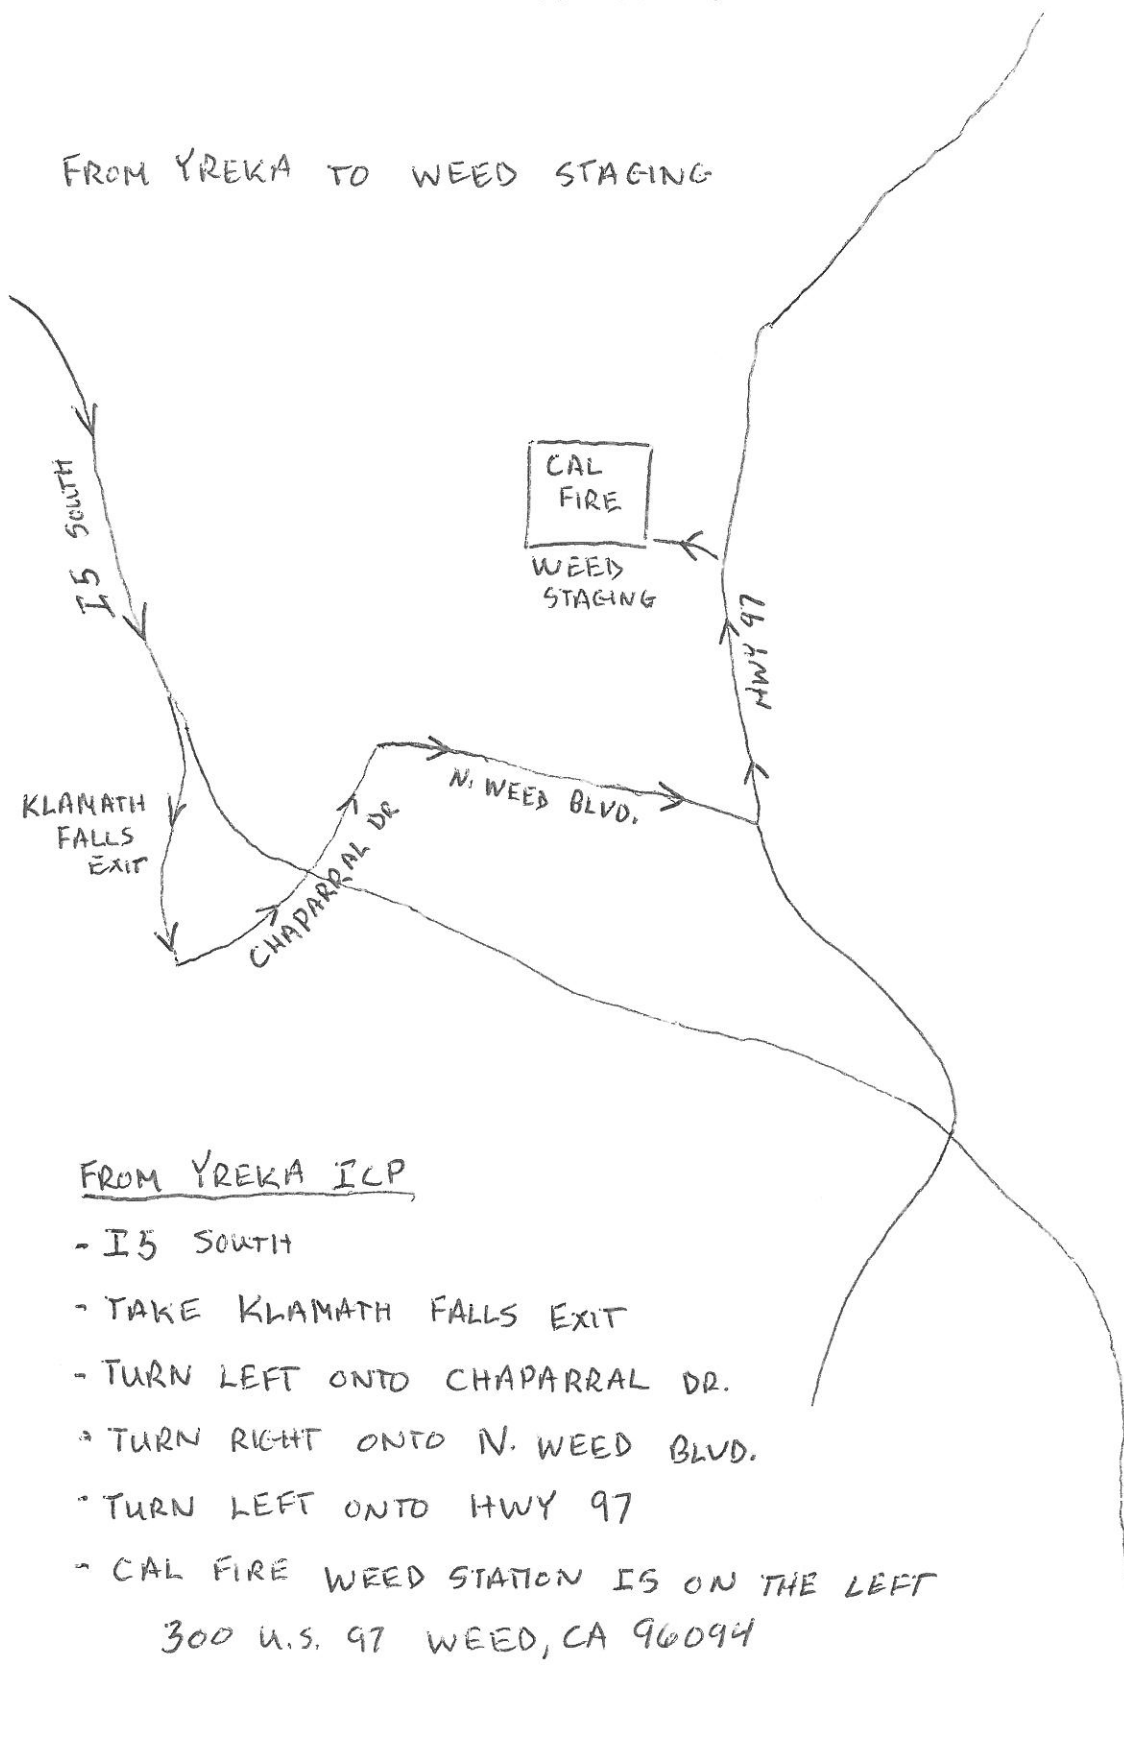 FROM YREKA TO WEED STAGING
I5 SOUTH
CAL
FIRE
WEED
STAGING
HWY 97
N. WEED BLVD.
KLAMATH
FALLS
EXIT
CHAPARRAL DR
FROM YREKA ICP
- I5 SOUTH
- TAKE KLAMATH FALLS EXIT
- TURN LEFT ONTO CHAPARRAL DR.
- TURN RIGHT ONTO N. WEED BLVD.
- TURN LEFT ONTO HWY 97
- CAL FIRE WEED STATION IS ON THE LEFT
300 U.S. 97 WEED, CA 96094